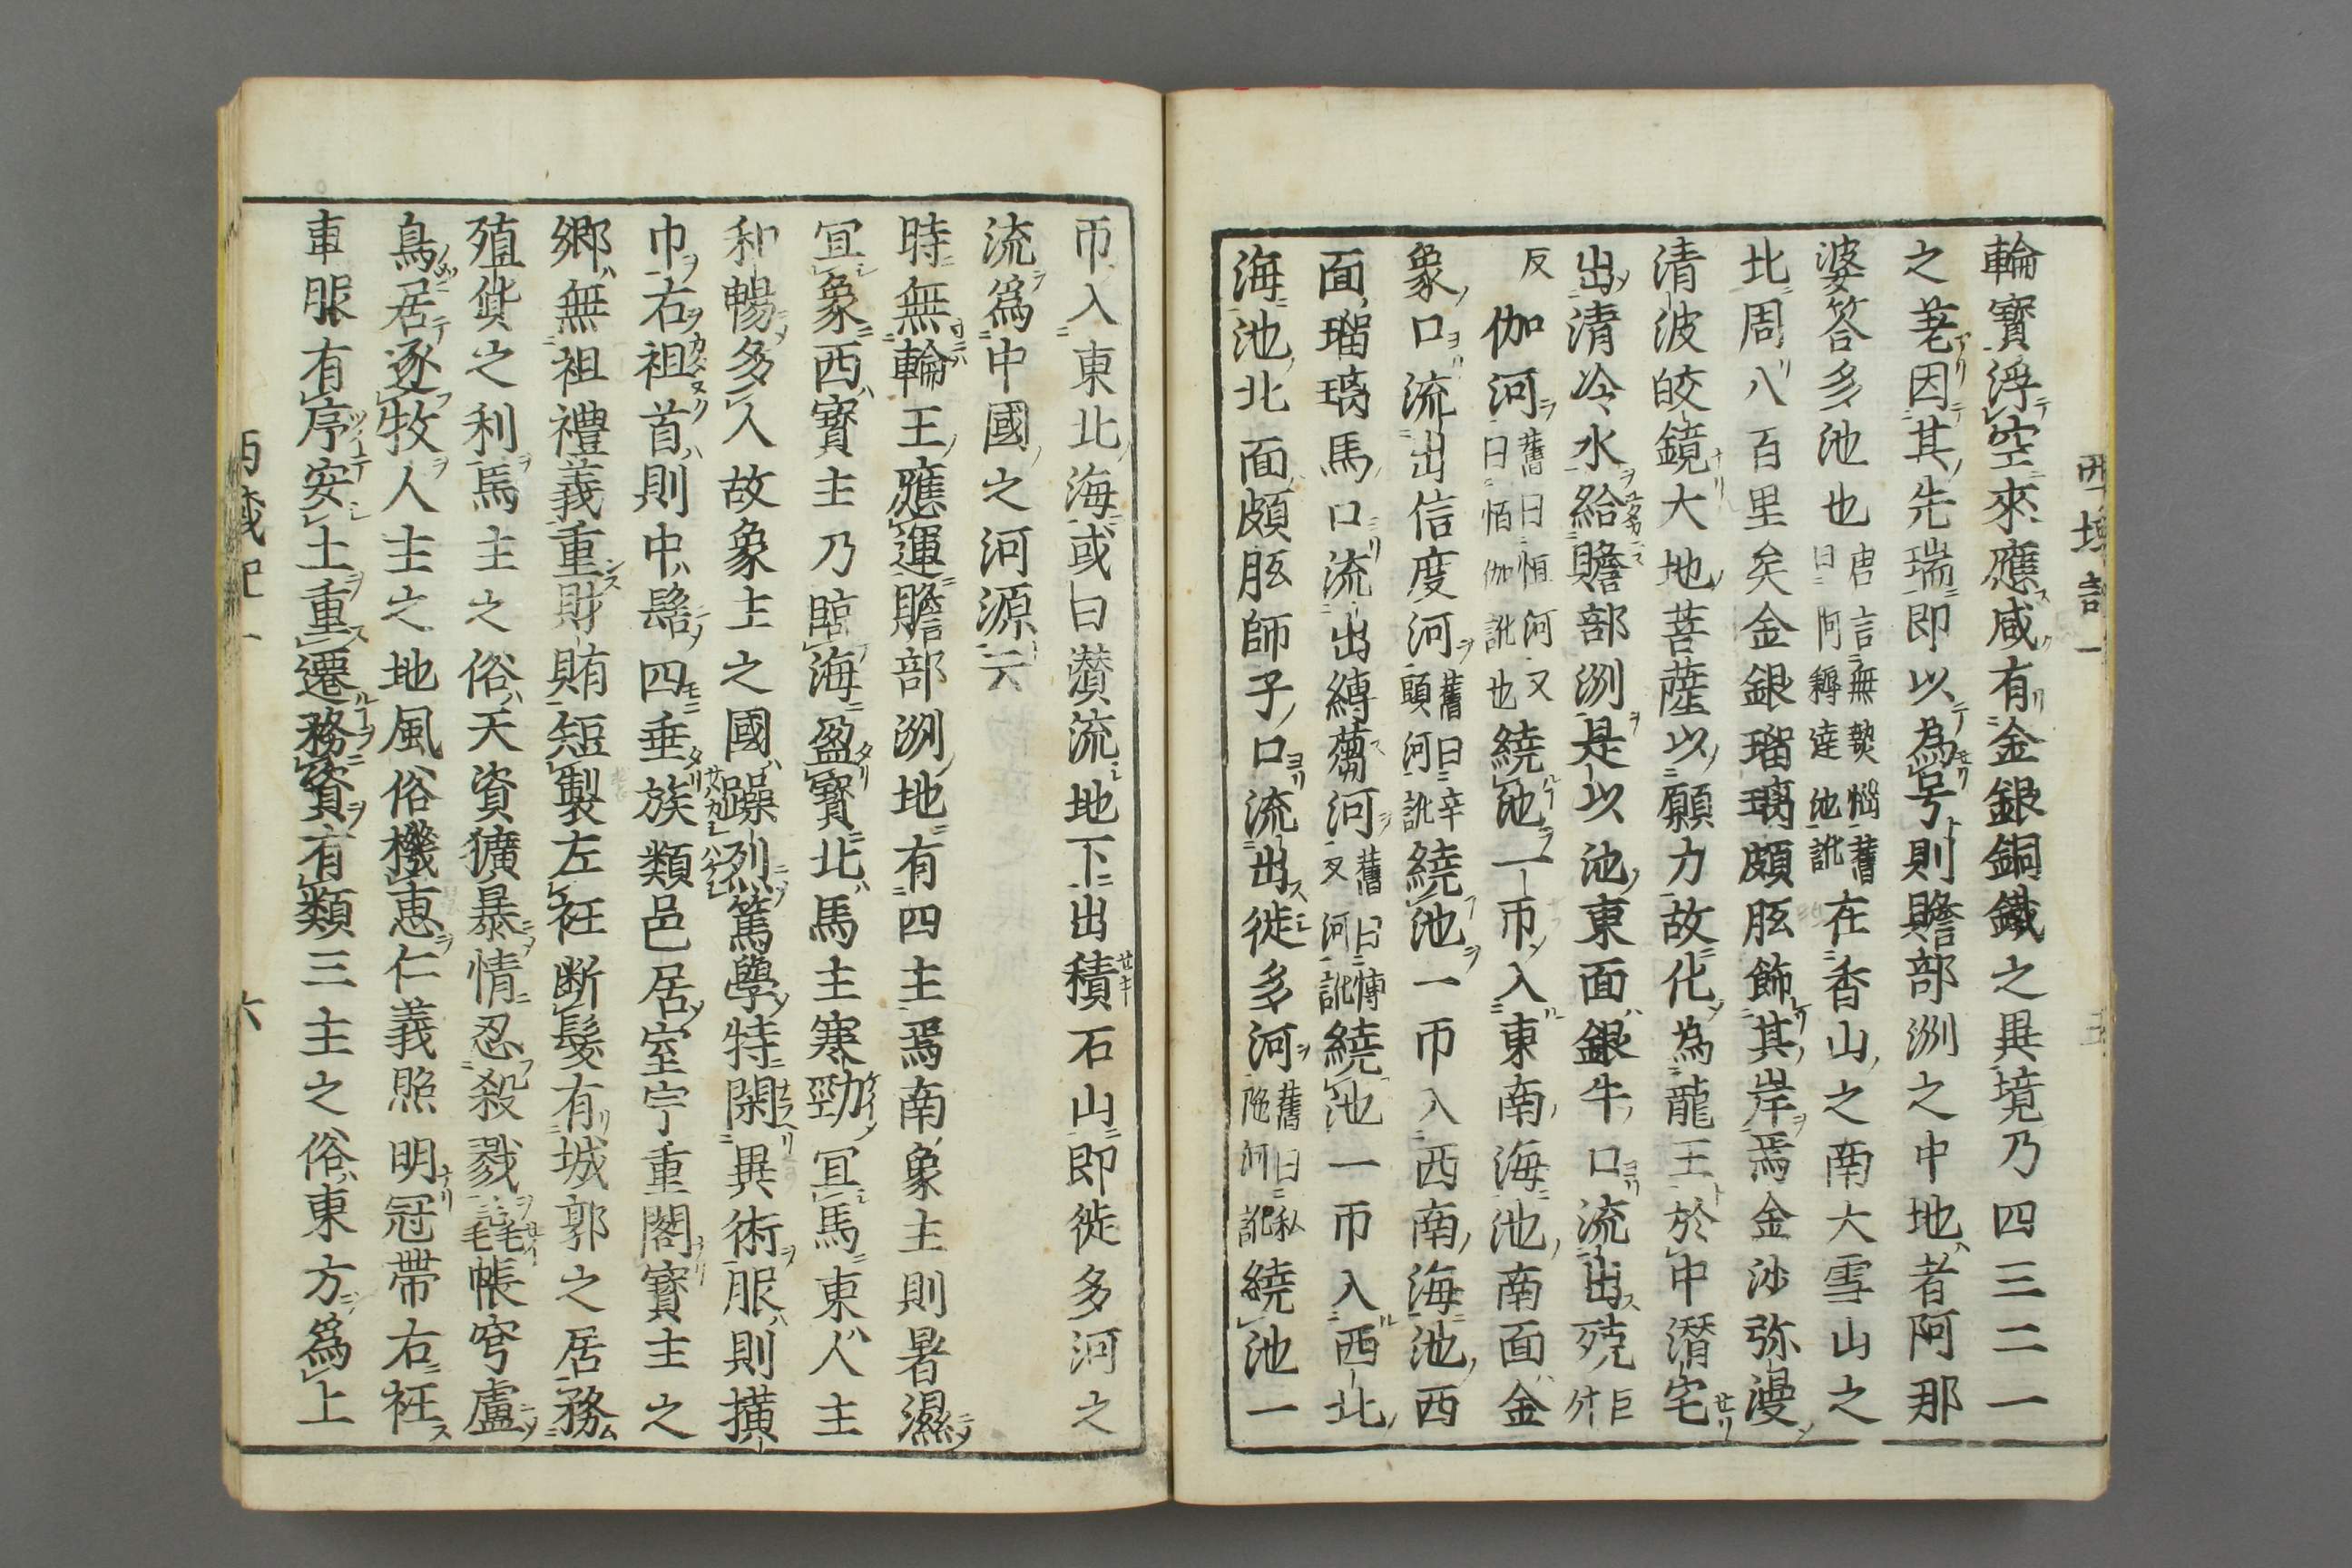 西域記一
輪寶浮空來應咸有金銀銅鐵之異境乃四三二一
之差因其先瑞即以為号則贍部洲之中地者阿那
婆答多池也唐言無熱惱舊曰阿耨達池訛在香山之南大雪山之
北周八百里矣金銀瑠璃頗胝飾其岸焉金沙弥漫
清波皎鏡大地菩薩以願力故化為龍王於中潜宅
出清冷水給贍部洲是以池東面銀牛口流出殑巨
反伽河舊曰恒河又曰恒伽訛也繞池一帀入東南海池南面金
象口流出信度河舊曰辛頭河訛繞池一帀入西南海池西
面瑠璃馬口流出縛蒭河舊曰博叉河訛繞池一帀入西北
海池北面頗胝師子口流出徙多河舊曰私陁河訛繞池一
帀入東北海或曰濳流地下出積石山即徙多河之
流爲中國之河源云
時無輪王應運贍部洲地有四主焉南象主則暑濕
宜象西寶主乃臨海盈寶北馬主寒勁宜馬東人主
和暢多人故象主之國躁烈篤學特閑異術服則撗
巾右袒首則中髻四垂族類邑居室宇重閣寶主之
鄉無祖禮義重財賄短製左衽断髮有城郭之居務
殖貨之利馬主之俗天資獷暴情忍殺戮毳帳穹廬
鳥居逐牧人主之地風俗機惠仁義照明冠帶右衽
車服有序安土重遷務資有類三主之俗東方爲上
西域記一
六